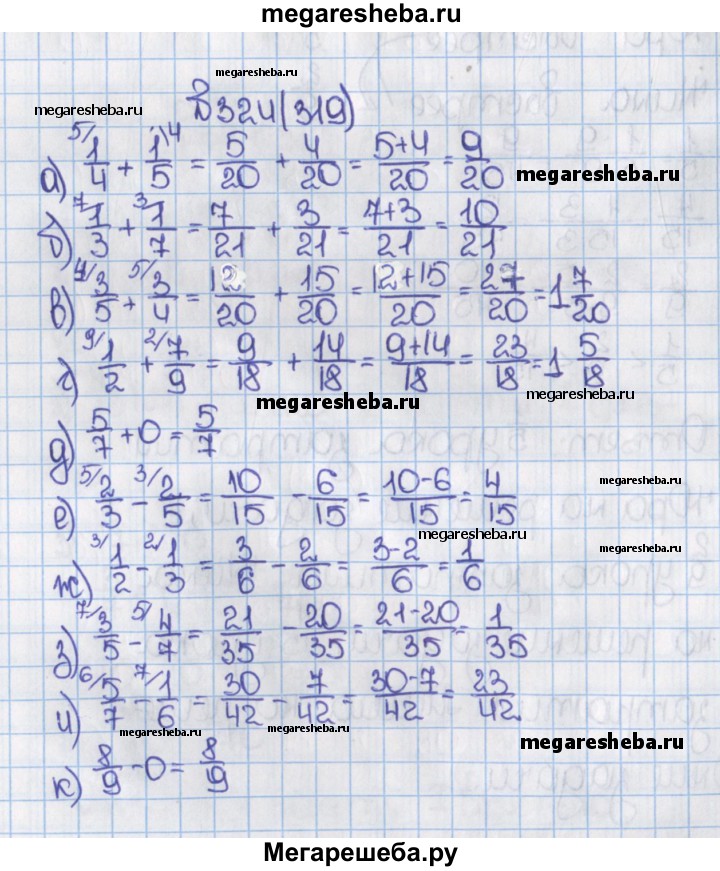 megaresheba.ru
megaresheba.ru
megaresheba.ru
№324(319)
а) 5/ 1/4 + 1/5 \4 = 5/20 + 4/20 = 5+4/20 = 9/20
megaresheba.ru
б) 7/ 1/3 + 3/ 1/7 = 7/21 + 3/21 = 7+3/21 = 10/21
в) 4/ 3/5 + 5/ 3/4 = 12/20 + 15/20 = 12+15/20 = 27/20 = 1 7/20
г) 9/ 1/2 + 2/ 7/9 = 9/18 + 14/18 = 9+14/18 = 23/18 = 1 5/18
megaresheba.ru
megaresheba.ru
д) 5/7 + 0 = 5/7
е) 5/ 2/3 - 3/ 2/5 = 10/15 - 6/15 = 10-6/15 = 4/15
megaresheba.ru
megaresheba.ru
ж) 3/ 1/2 - 2/ 1/3 = 3/6 - 2/6 = 3-2/6 = 1/6
megaresheba.ru
з) 7/ 3/5 - 5/ 4/7 = 21/35 - 20/35 = 21-20/35 = 1/35
и) 6/ 5/7 - 7/ 1/6 = 30/42 - 7/42 = 30-7/42 = 23/42
megaresheba.ru
megaresheba.ru
megaresheba.ru
к) 8/9 - 0 = 8/9
Мегарешеба.ру